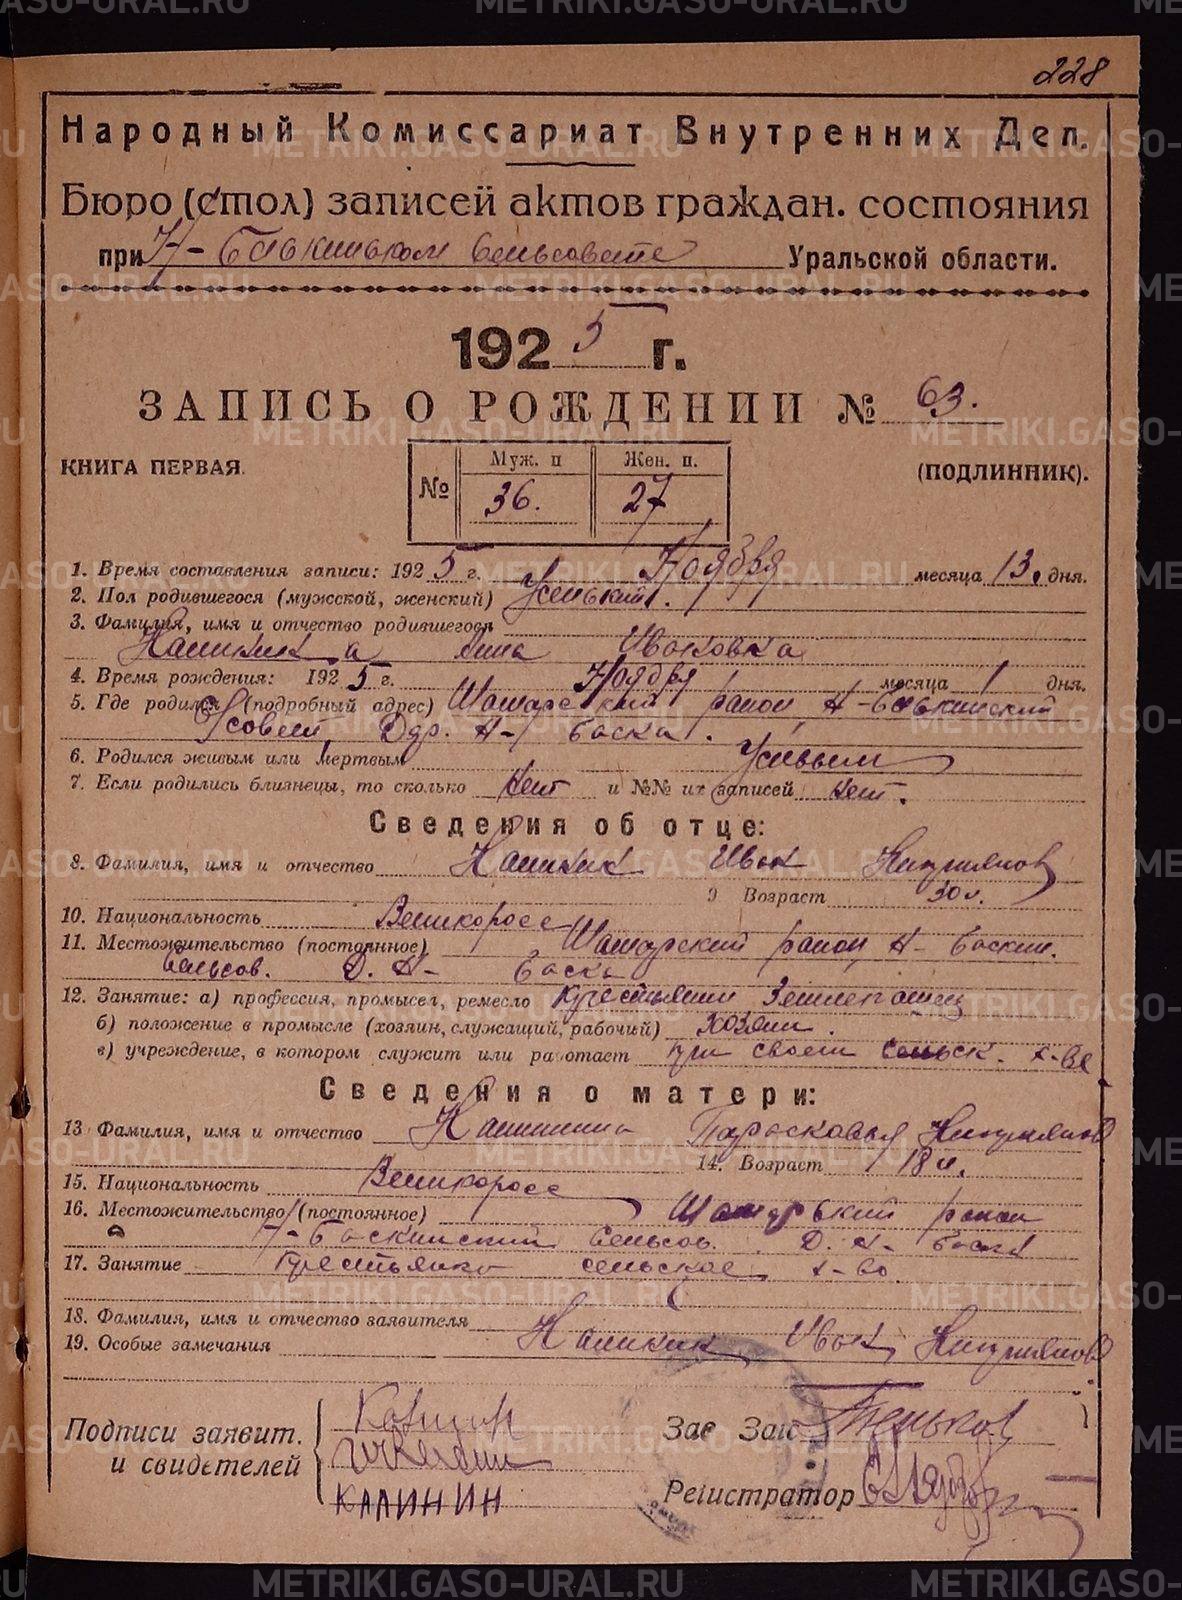 228
Народный Комиссариат Внутренних Дел.
Бюро (стол) записей актов граждан. состояния
при Н-Баскинском сельсовете Уральской области.
1925 г.
ЗАПИСЬ О РОЖДЕНИИ № 63.
КНИГА ПЕРВАЯ.
(ПОДЛИННИК).
№ Муж. п Жен. п.
36. 27
1. Время составления записи: 1925 г. Ноября месяца 13. дня.
2. Пол родившегося (мужской, женский) Женский.
3. Фамилия, имя и отчество родившегося
Калинина Анна Ивановна
4. Время рождения: 1925 г. Ноября месяца 1 дня.
5. Где родился (подробный адрес) Шатарский район, Н-Баскинский
Совет, Дер. Н- Баска.
6. Родился живым или мертвым Живым
7. Если родились близнецы, то сколько нет и №№ их записей нет.
Сведения об отце:
8. Фамилия, имя и отчество Калинин Иван Киприянов
9 Возраст 30 л.
10. Национальность Великоросс
11. Местожительство (постоянное) Шатарский район Н- Баскин.
Сельсов. Д. Н- Баска
12. Занятие: а) профессия, промысел, ремесло Крестьянин Землепашец
б) положение в промысле (хозяин, служащий, рабочий) хозяин.
в) учреждение, в котором служит или работает при своем сельск. х-ве
Сведения о матери:
13 Фамилия, имя и отчество Калинина Парасковья Киприянов
14. Возраст 18 л.
15. Национальность Великоросс
16. Местожительство (постоянное) Шатарский район
Н-Баскинский Сельсов. Д. Н- Баска
17. Занятие Крестьянка сельское х-во.
18. Фамилия, имя и отчество заявителя Калинин Иван Киприянов
19. Особые замечания
Подписи заявит. и свидетелей
Калинин
КАЛИНИН
Зав Загс
Регистратор
METRIKI.GASO-URAL.RU